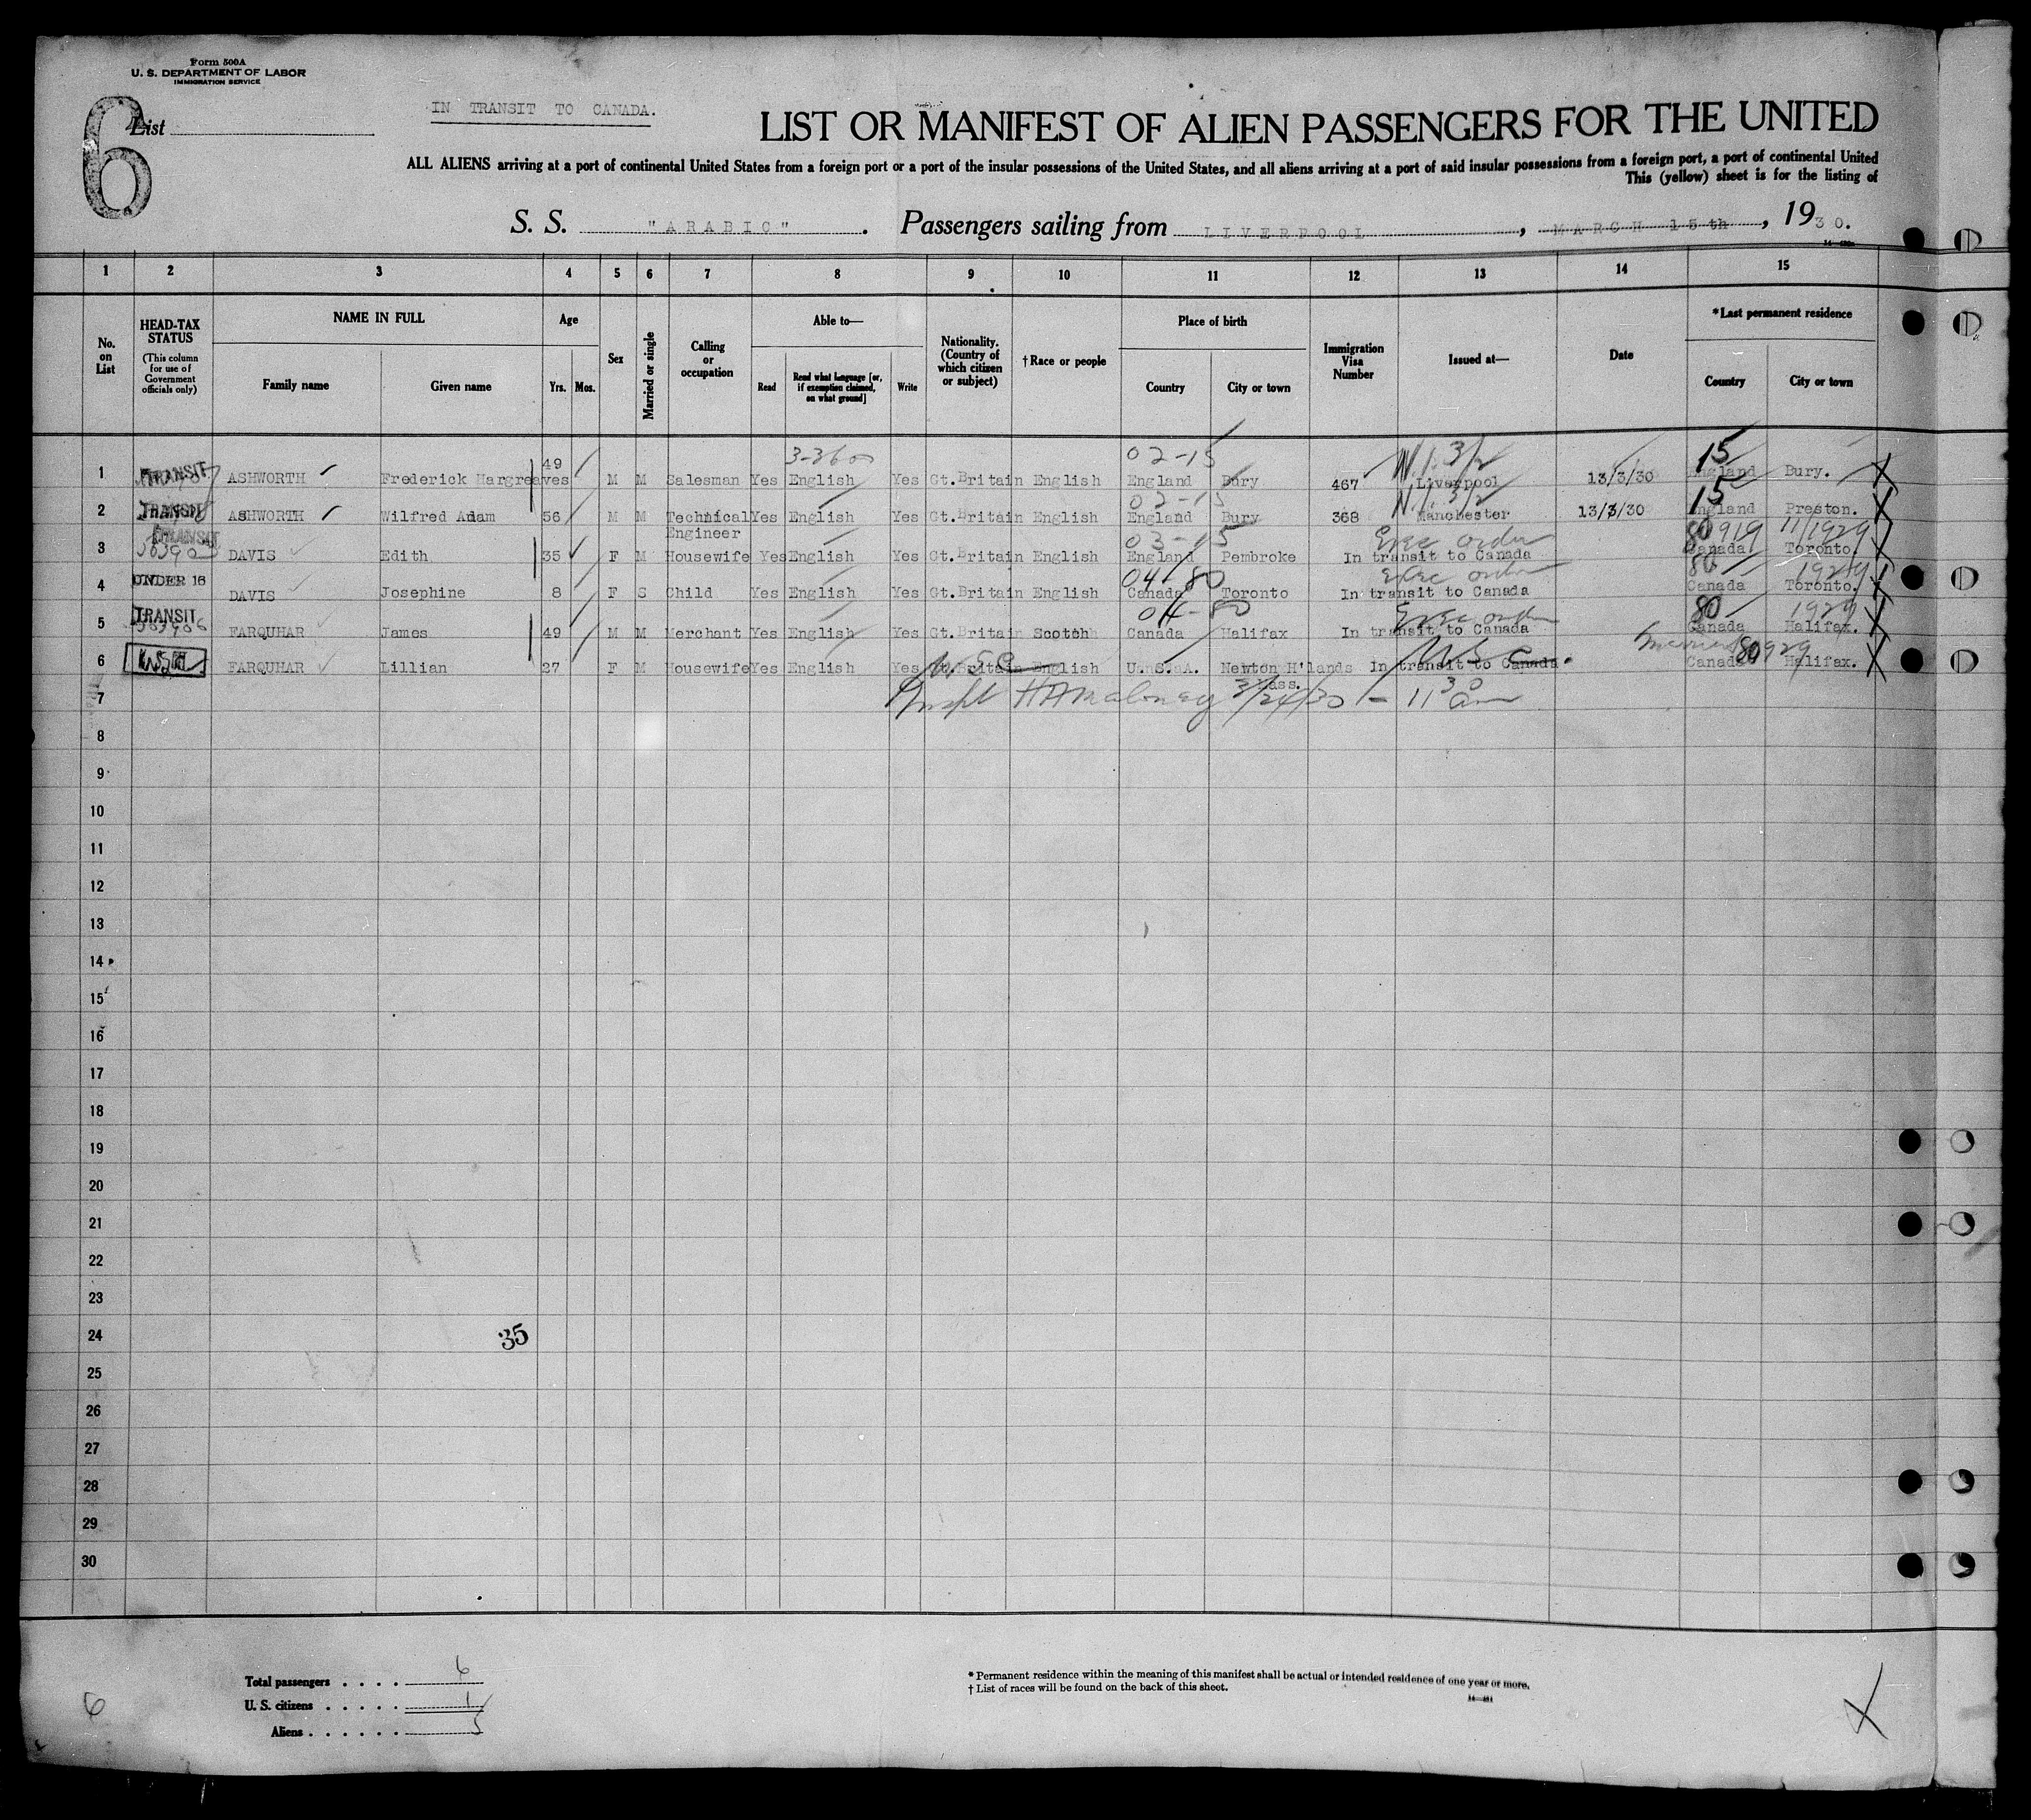 Form 500A
U. S. DEPARTMENT OF LABOR
IMMIGRATION SERVICE
6
List
IN TRANSIT TO CANADA.
LIST OR MANIFEST OF ALIEN PASSENGERS FOR THE UNITED
ALL ALIENS arriving at a port of continental United States from a foreign port or a port of the insular possessions of the United States, and all aliens arriving at a port of said insular possessions from a foreign port, a port of continental United
This (yellow) sheet is for the listing of
S. S. "ARABIC". Passengers sailing from LIVERPOOL, MARCH 15th, 1930.
1 2 3 4 5 6 7 8 9 10 11 12 13 14 15
No. on List
HEAD-TAX STATUS (This column for use of Government officials only)
NAME IN FULL
Family name Given name
Age
Yrs. Mos.
Sex
Married or single
Calling or occupation
Able to—
Read Read what language [or, if exemption claimed, on what ground] Write
Nationality. (Country of which citizen or subject)
† Race or people
Place of birth
Country City or town
Immigration Visa Number
Issued at—
Date
* Last permanent residence
Country City or town
3-360 02-15 N.I. 3/2 15
1 TRANSIT ASHWORTH Frederick Hargreaves 49 M M Salesman Yes English Yes Gt.Britain English England Bury 467 Liverpool 13/3/30 England Bury.
02-15 N.I. 3/2 15
2 TRANSIT ASHWORTH Wilfred Adam 56 M M Technical Engineer Yes English Yes Gt.Britain English England Bury 368 Manchester 13/3/30 England Preston.
TRANSIT 03-15 Exec order 80 919 11/1929
3 DAVIS Edith 35 F M Housewife Yes English Yes Gt.Britain English England Pembroke In transit to Canada Canada Toronto.
04-80 Exec order 80 1929
4 UNDER 16 DAVIS Josephine 8 F S Child Yes English Yes Gt.Britain English Canada Toronto In transit to Canada Canada Toronto.
04-80 Exec order 80 1929
5 TRANSIT FARQUHAR James 49 M M Merchant Yes English Yes Gt.Britain Scotch Canada Halifax In transit to Canada Canada Halifax.
U.S.C. U.S.C. 80 929
6 FARQUHAR Lillian 27 F M Housewife Yes English Yes Gt.Britain English U.S.A. Newton H'lands Mass. In transit to Canada. Canada Halifax.
7 Inspt HA Maloney 3/24/30 - 11 30 am
8
9
10
11
12
13
14
15
16
17
18
19
20
21
22
23
24
35
25
26
27
28
29
30
Total passengers . . . . 6
U. S. citizens . . . . . 1
Aliens . . . . . . 5
6
* Permanent residence within the meaning of this manifest shall be actual or intended residence of one year or more.
† List of races will be found on the back of this sheet.
X